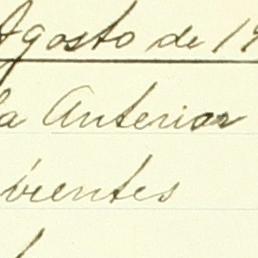 Agosto de 19
la Anterior
vientes